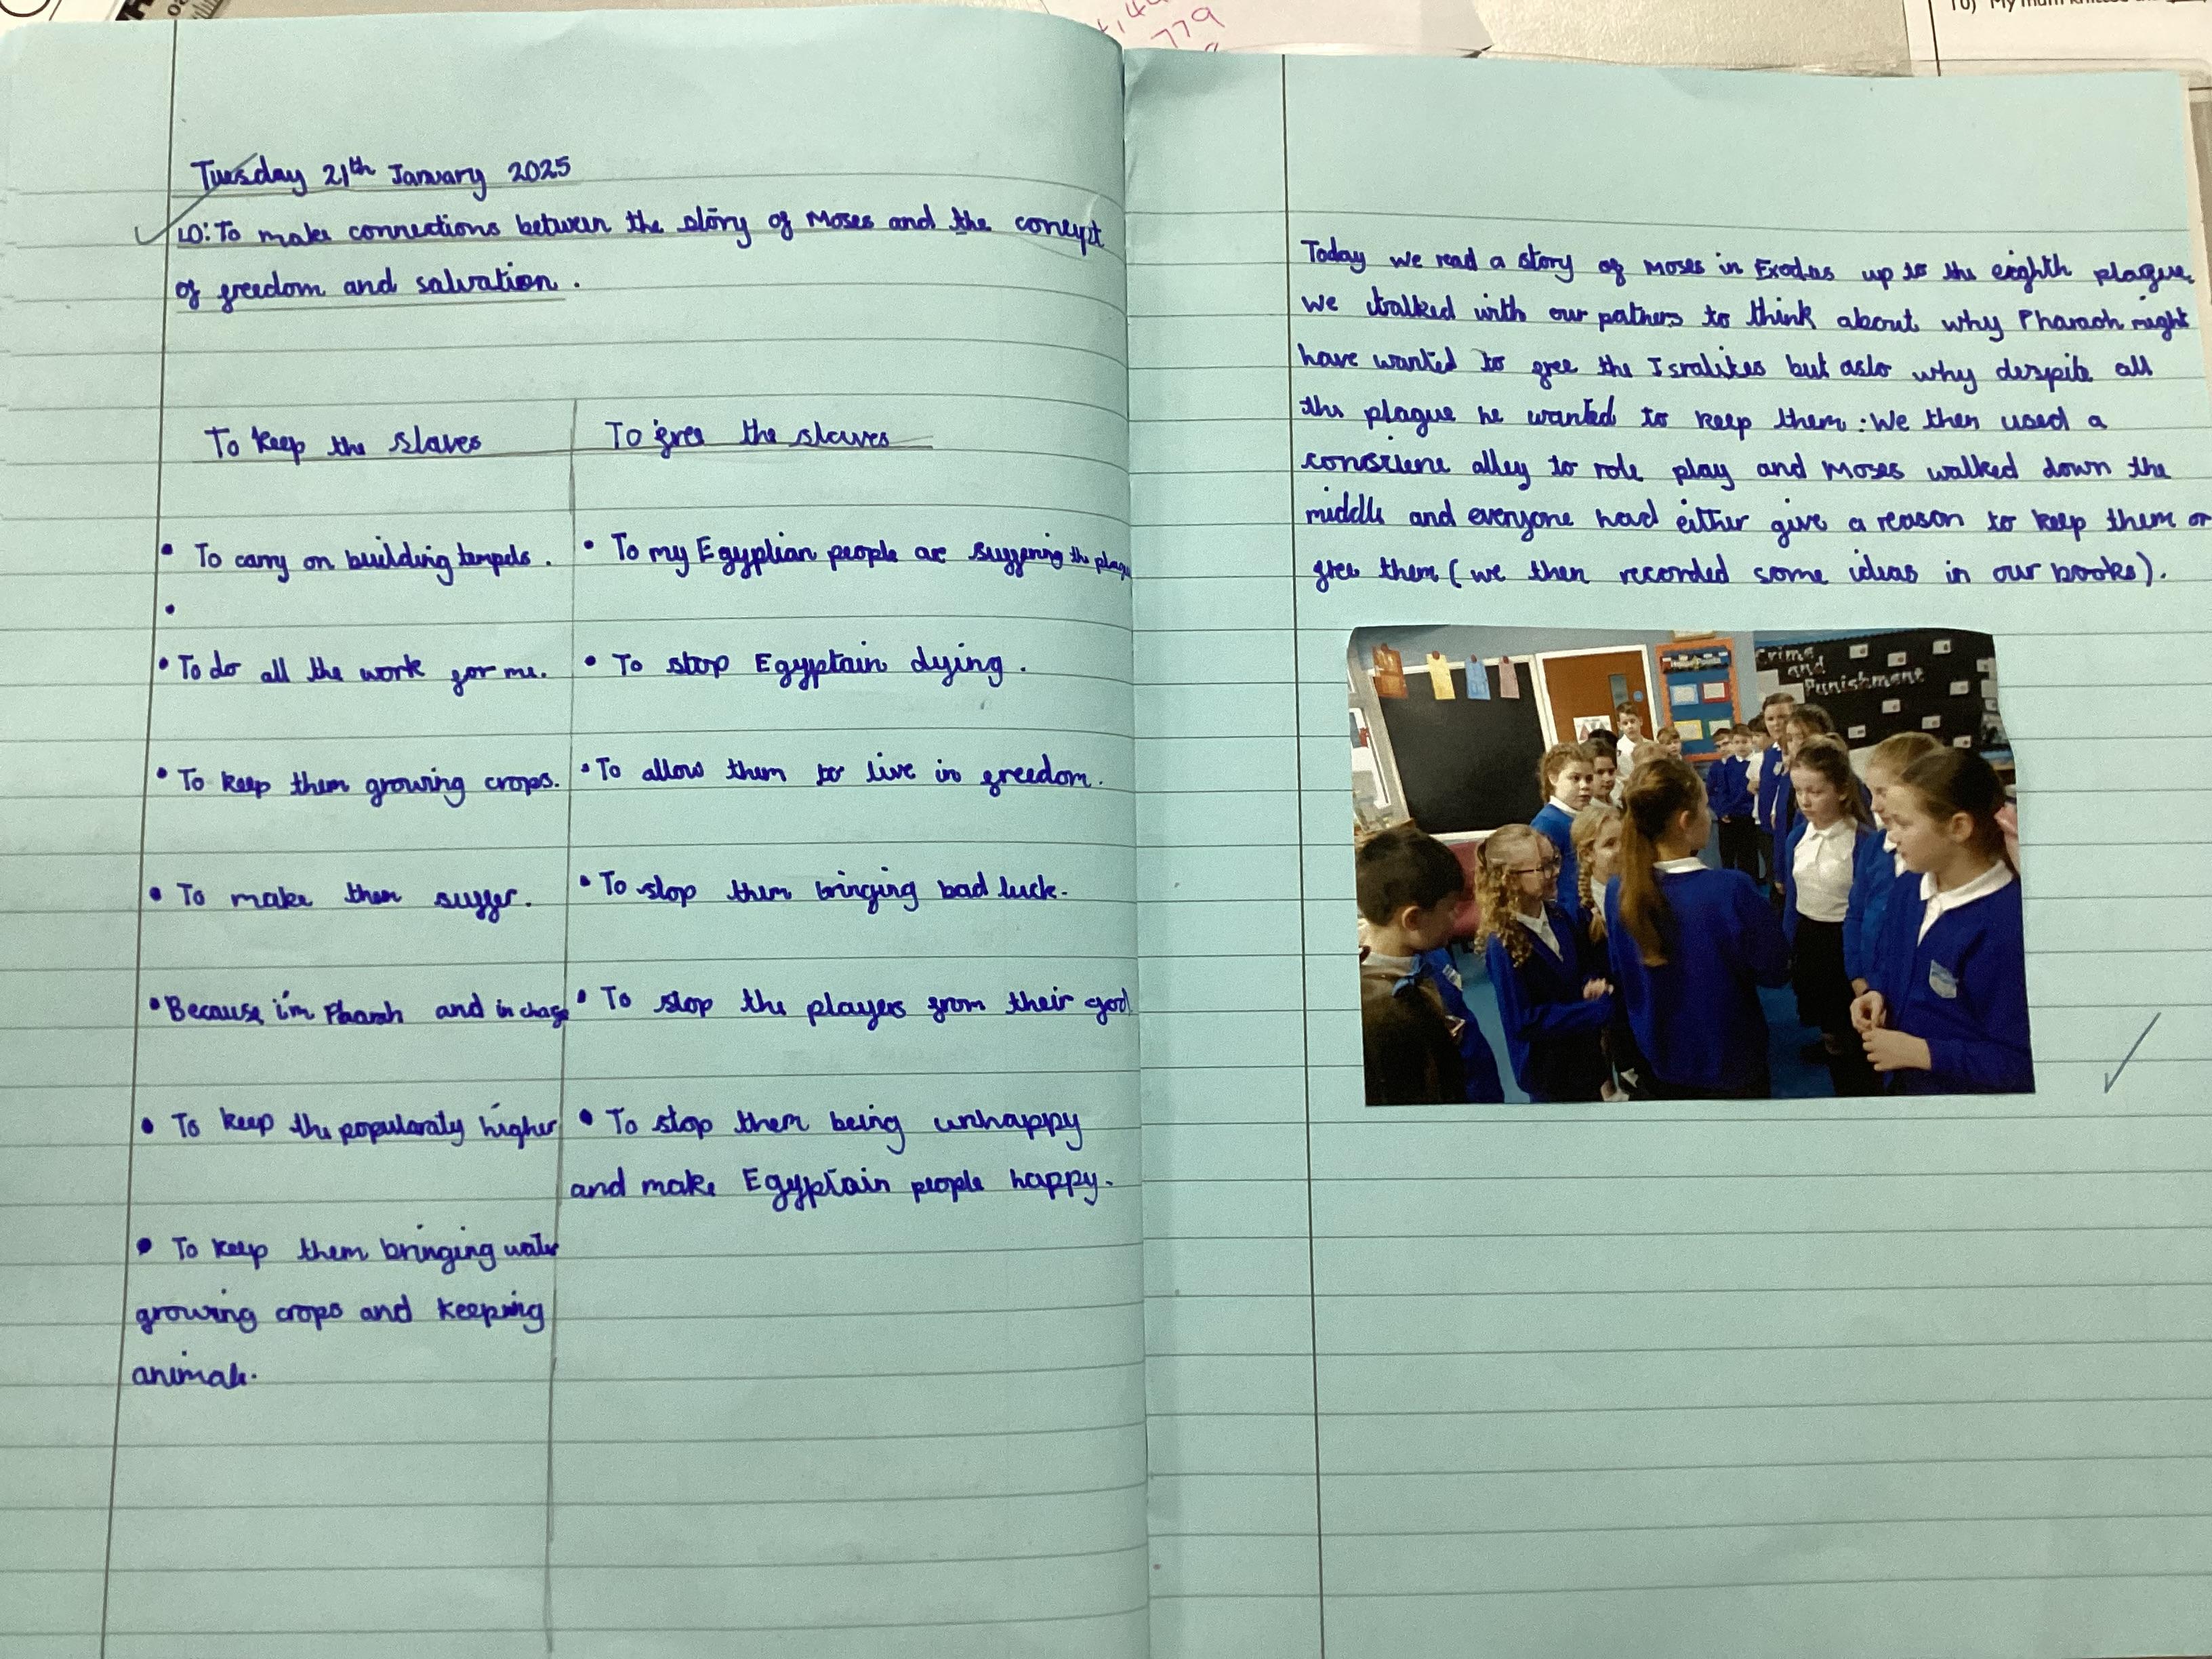 779
10) My mum knitted
Tuesday 21th January 2025
LO: To make connections between the story of Moses and the concept
of freedom and salvation.
To keep the slaves
To free the slaves
• To carry on building tempels.
• To my Egyptian people are suffering the plague
•
• To do all the work for me.
• To stop Egyptain dying.
• To keep them growing crops.
• To allow them to live in freedom.
• To make them suffer.
• To stop them bringing bad luck.
• Because i'm Pharoh and in charge
• To stop the players from their god
• To keep the popularaty higher
• To stop them being unhappy
and make Egyptain people happy.
• To keep them bringing water
growing crops and keeping
animals.
Today we read a story of Moses in Exodus up to the eighth plague.
We talked with our patners to think about why Pharaoh might
have wanted to free the Isralites but aslo why despite all
the plague he wanted to keep them. We then used a
alley to role play and Moses walked down the
middle and everyone had either give a reason to keep them or
free them (we then recorded some ideas in our books).
Crime
and
Punishment